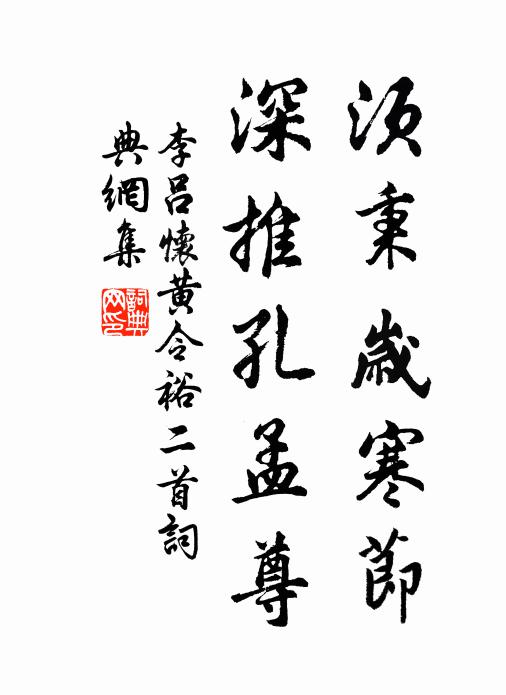 須秉歲寒節
深推孔孟尊
李呂懷黃令裕二首詞
典網集
詞典網印